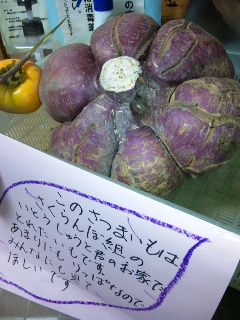 消毒
このさつまいもは
さくらんぼ組の
いとうしょうと君のお家で
とれたいもです。
あまりにもりっぱなので
みんなに見て
ほしいです